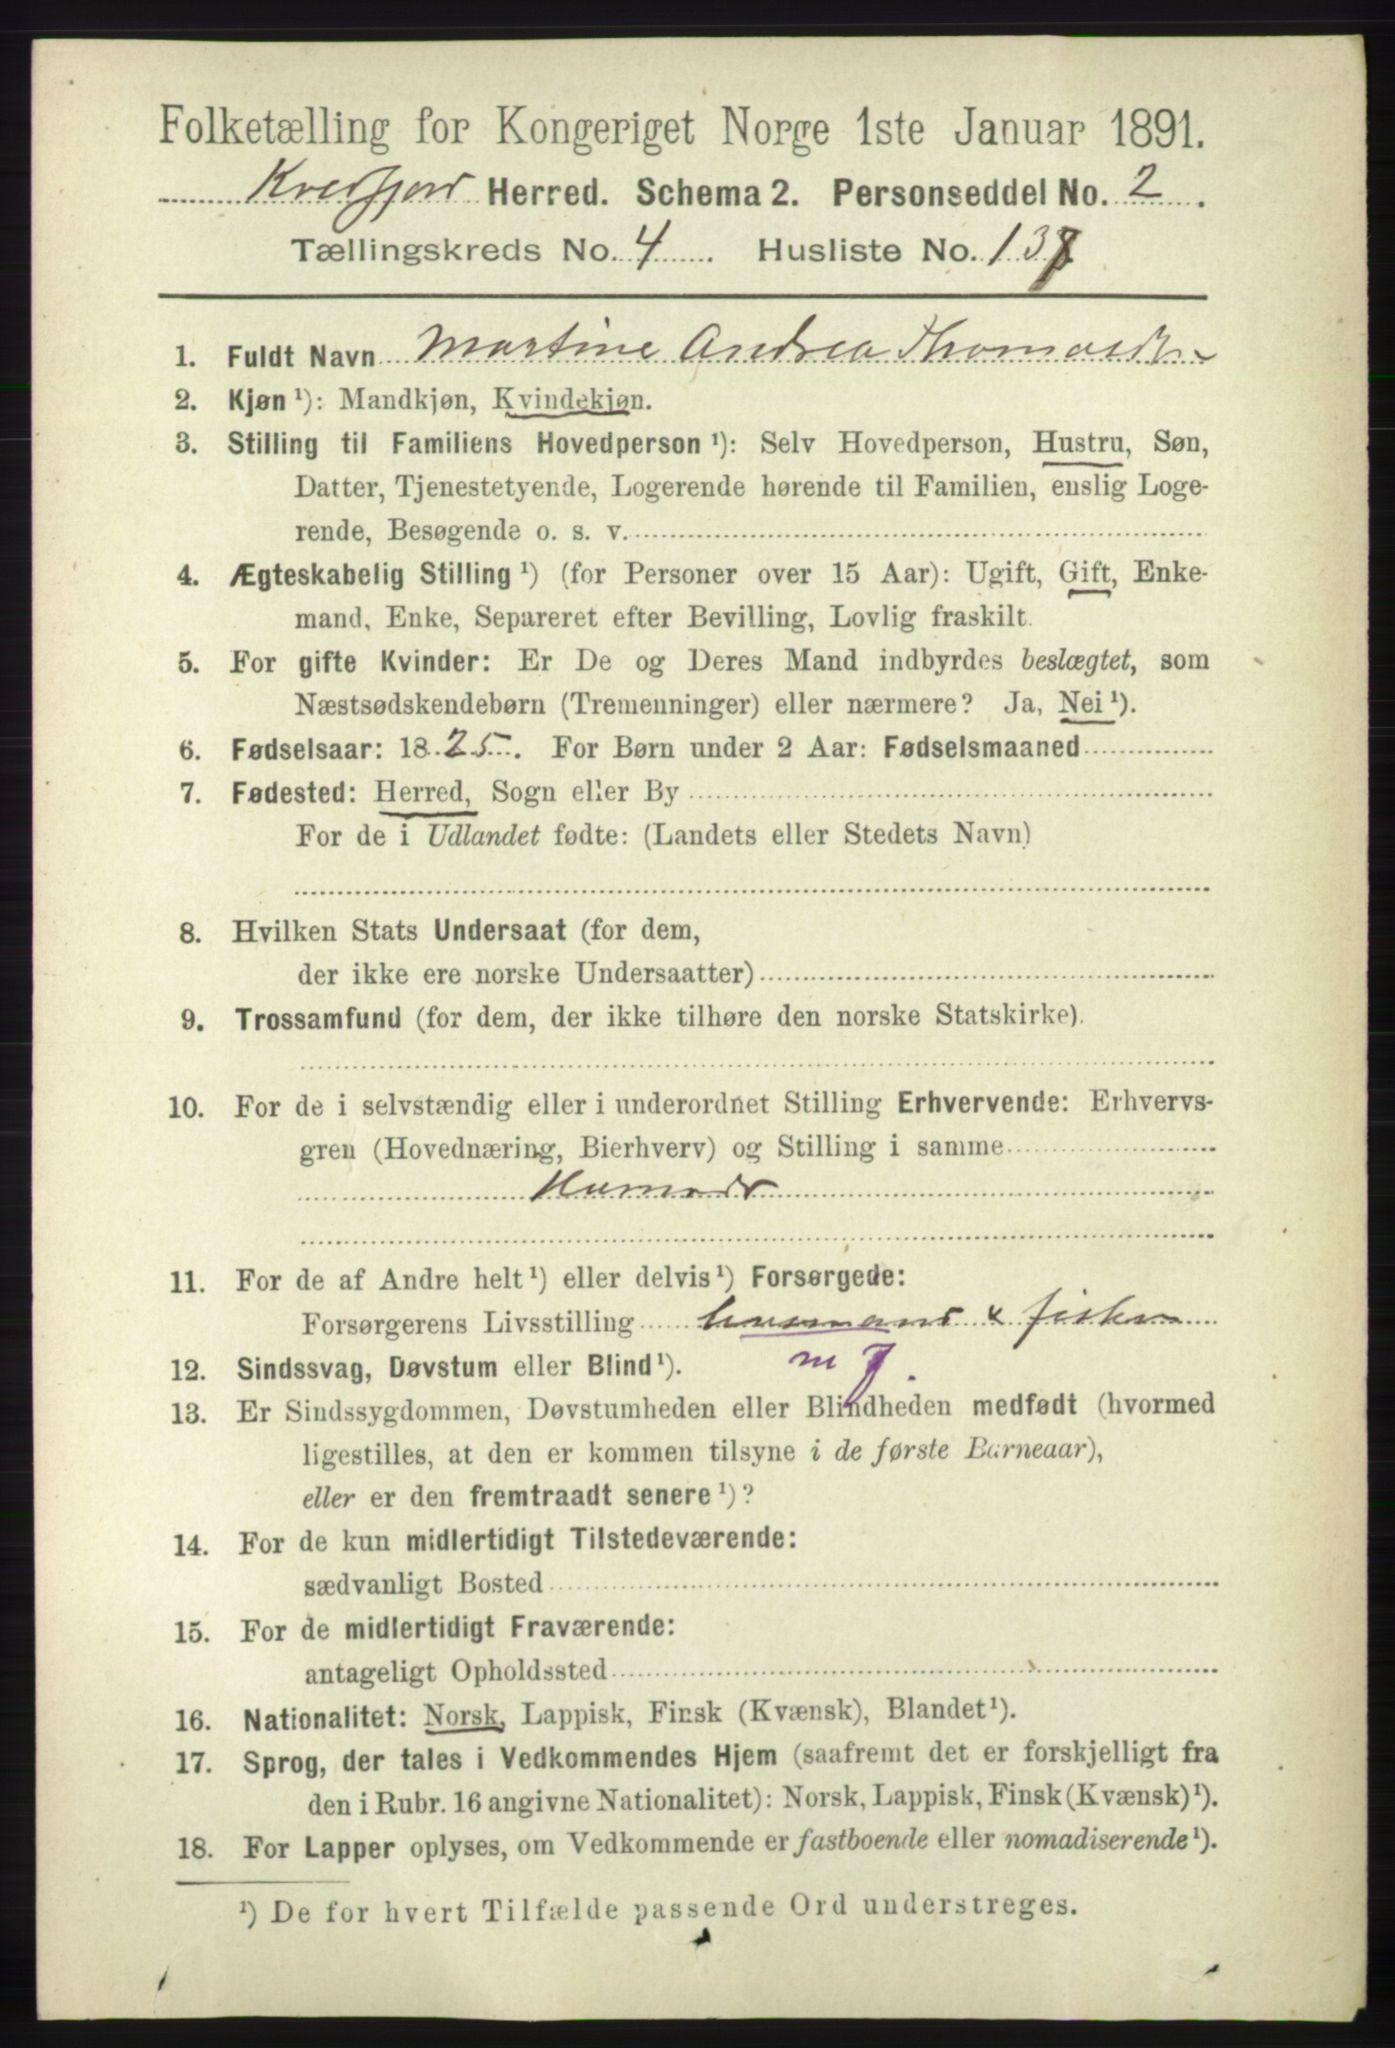 Folketælling for Kongeriget Norge 1ste Januar 1891.
Kvedfjord Herred. Schema 2. Personseddel No. 2.
Tællingskreds No. 4. Husliste No. 137
1. Fuldt Navn Martine Andrea Thomasdtr
2. Kjøn ¹): Mandkjøn, Kvindekjøn.
3. Stilling til Familiens Hovedperson ¹): Selv Hovedperson, Hustru, Søn,
Datter, Tjenestetyende, Logerende hørende til Familien, enslig Loge-
rende, Besøgende o. s. v.
4. Ægteskabelig Stilling ¹) (for Personer over 15 Aar): Ugift, Gift, Enke-
mand, Enke, Separeret efter Bevilling, Lovlig fraskilt.
5. For gifte Kvinder: Er De og Deres Mand indbyrdes beslægtet, som
Næstsødskendebørn (Tremenninger) eller nærmere? Ja, Nei ¹).
6. Fødselsaar: 1825. For Børn under 2 Aar: Fødselsmaaned
7. Fødested: Herred, Sogn eller By
For de i Udlandet fødte: (Landets eller Stedets Navn)
8. Hvilken Stats Undersaat (for dem,
der ikke ere norske Undersaatter)
9. Trossamfund (for dem, der ikke tilhøre den norske Statskirke).
10. For de i selvstændig eller i underordnet Stilling Erhvervende: Erhvervs-
gren (Hovednæring, Bierhverv) og Stilling i samme
11. For de af Andre helt ¹) eller delvis ¹) Forsørgede:
Forsørgerens Livsstilling husmand & fisker
12. Sindssvag, Døvstum eller Blind ¹).
13. Er Sindssygdommen, Døvstumheden eller Blindheden medfødt (hvormed
ligestilles, at den er kommen tilsyne i de første Barneaar),
eller er den fremtraadt senere ¹)?
14. For de kun midlertidigt Tilstedeværende:
sædvanligt Bosted
15. For de midlertidigt Fraværende:
antageligt Opholdssted
16. Nationalitet: Norsk, Lappisk, Finsk (Kvænsk), Blandet ¹).
17. Sprog, der tales i Vedkommendes Hjem (saafremt det er forskjelligt fra
den i Rubr. 16 angivne Nationalitet): Norsk, Lappisk, Finsk (Kvænsk) ¹).
18. For Lapper oplyses, om Vedkommende er fastboende eller nomadiserende ¹).
¹) De for hvert Tilfælde passende Ord understreges.